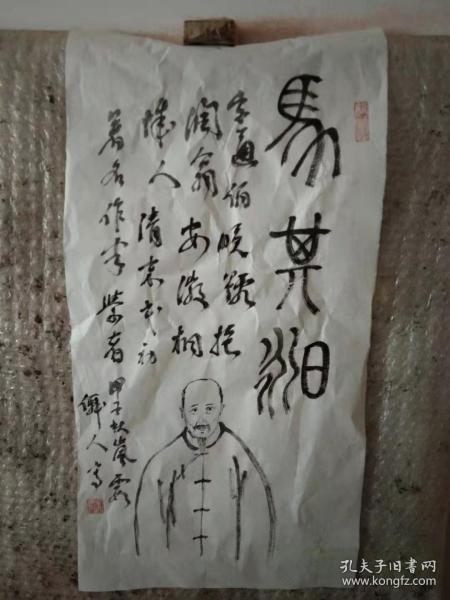 馬其昶
字通伯晚號抱
潤翁 安徽桐
城人 清末民初
著名作家學者
甲子秋嵐霧
僻人寫
孔夫子旧书网
www.kongfz.com